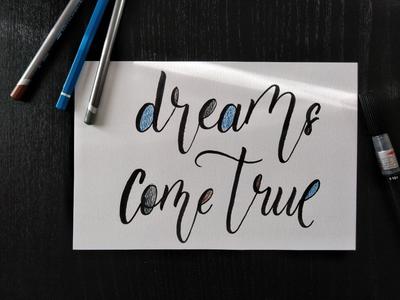 dreams
come true